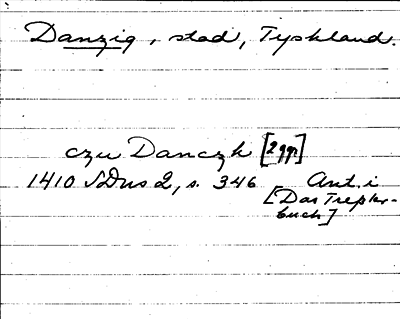 Danzig, stad, Tyskland.
czu Danczk [2 ggr]
1410 SDns 2, s. 346 Ant. i
[Das Tresslerbuch]